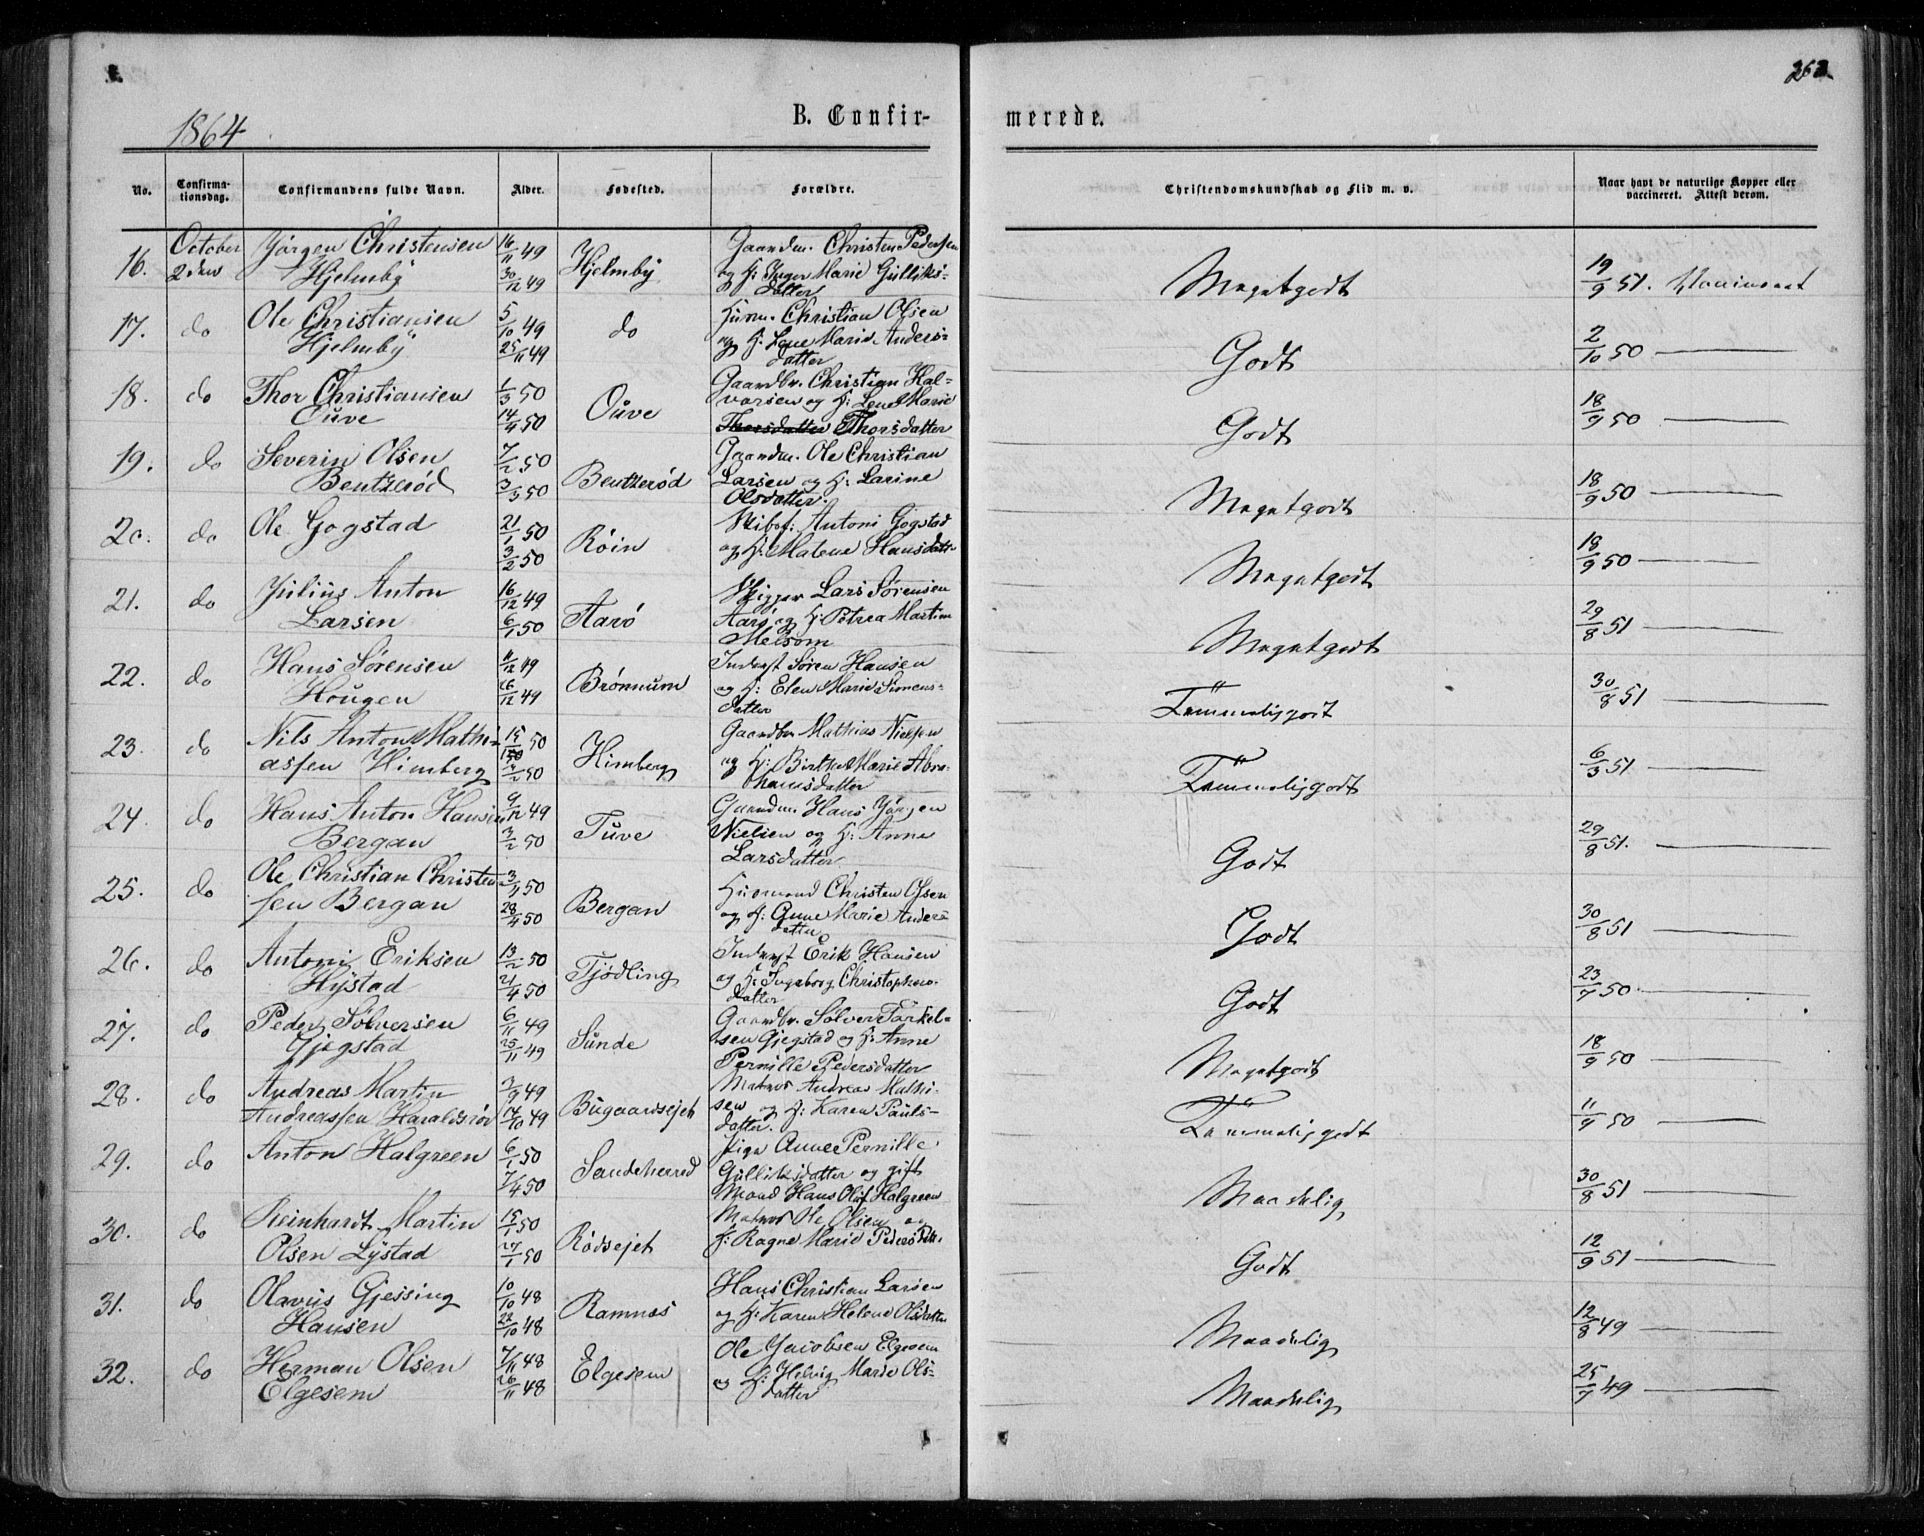 1864
B. Confirmerede.
263.
No. | Confirmationsdag. | Confirmandens fulde Navn. | Alder. | Fødested. | Forældre. | Christendomskundskab og Flid m. v. | Naar havt de naturlige Kopper eller vaccineret. Attest derom.
16. October 2den | Jörgen Christensen Hjelmby | 16/11 49 30/12 49 | Hjelmby | Gaardm. Christen Pedersen og H: Inger Marie Gulliksdatter | Megetgodt | 19/9 51. Vaccineret
17. do | Ole Christiansen Hjelmby | 5/10 49 25/11 49 | do | Husm. Christian Olsen og H: Lene Marie Andersdatter | Godt | 2/10 50 —
18. do | Thor Christiansen Ouve | 1/3 50 14/4 50 | Ouve | Gaardbr. Christian Halvorsen og H: Lene Marie Thorsdatter Thorsdatter | Godt | 18/9 50 —
19. do | Severin Olsen Bentzerød | 7/2 50 3/3 50 | Bentzerød | Gaardm. Ole Christian Larsen og H: Larine Olsdatter. | Megetgodt | 18/9 50 —
20. do | Ole Gogstad | 21/1 50 3/2 50 | Röin | Skibsf: Antoni Gogstad og H: Malene Hansdatr | Megetgodt | 18/9 50 —
21. do | Julius Anton Larsen | 16/12 49 6/1 50 | Aarö | Skipper Lars Sörensen Aarö og H: Petrea Martine Melsom | Megetgodt | 29/8 51 —
22. do | Hans Sørensen Hougen | 11/12 49 26/12 49 | Brønnum | Inderst Søren Hansen og H: Elen Marie Simensdatter | Temmeliggodt | 30/8 51 —
23. do | Nils Anton Mathiassen Himberg | 15/1 50 /2 50 | Himberg | Gaardbr Mathias Nielsen og H: Birthe Marie Abrahamsdatter | Temmeliggodt | 6/3 51 —
24. do | Hans Anton Hansen Bergan | 9/12 49 3/2 50 | Tuve | Gaardm. Hans Jörgen Nielsen og H: Anne Larsdatter | Godt | 29/8 51. —
25. do | Ole Christian Christensen Bergan | 3/4 50 28/4 50 | Bergan | Husmand Christen Olsen og H: Anne Marie Andersdatter | Godt | 30/8 51 —
26. do | Antoni Eriksen Hystad | 13/2 50 21/4 50 | Tjødling | Inderst Erik Hansen og H: Ingeborg Christophersdatter | Godt | 23/7 50 —
27. do | Peder Sølversen Gjegstad | 6/11 49 25/11 49 | Sunde | Gaardbr. Sølver Torkelsen Gjegstad og H: Anne Pernille Pedersdatter | Megetgodt | 18/9 50 —
28. do | Andreas Martin Andreassen Haraldsrör | 3/9 49 14/10 49 | Bugaardsejet | Matros Andreas Mathisen og H: Karen Paulsdatter. | Temmeliggodt | 11/9 50 —
29. do | Anton Halgreen | 6/1 50 7/4 50 | Sandeherred | Pige Anne Pernille Gulliksdatter og gift Mand Hans Olof Halgreen | Maadelig | 30/8 51 —
30. do | Reinhardt Martin Olsen Lystad | 15/1 50 27/1 50 | Rødsejet | Matros Ole Olsen og H: Ragne Marie Pedersdtr. | Godt | 12/9 51 —
31. do | Olavus Gjessing Hansen | 10/10 48 22/10 48 | Ramnæs | Hans Christian Larsen og H: Karen Helene Olsdatter | Maadelig | 12/8 49 —
32. do | Herman Olsen Elgesem | 7/11 48 26/11 48 | Elgesem | Ole Jacobsen Elgesem og H: Helvig Marie Olsdatter | Maadelig | 25/7 49 —